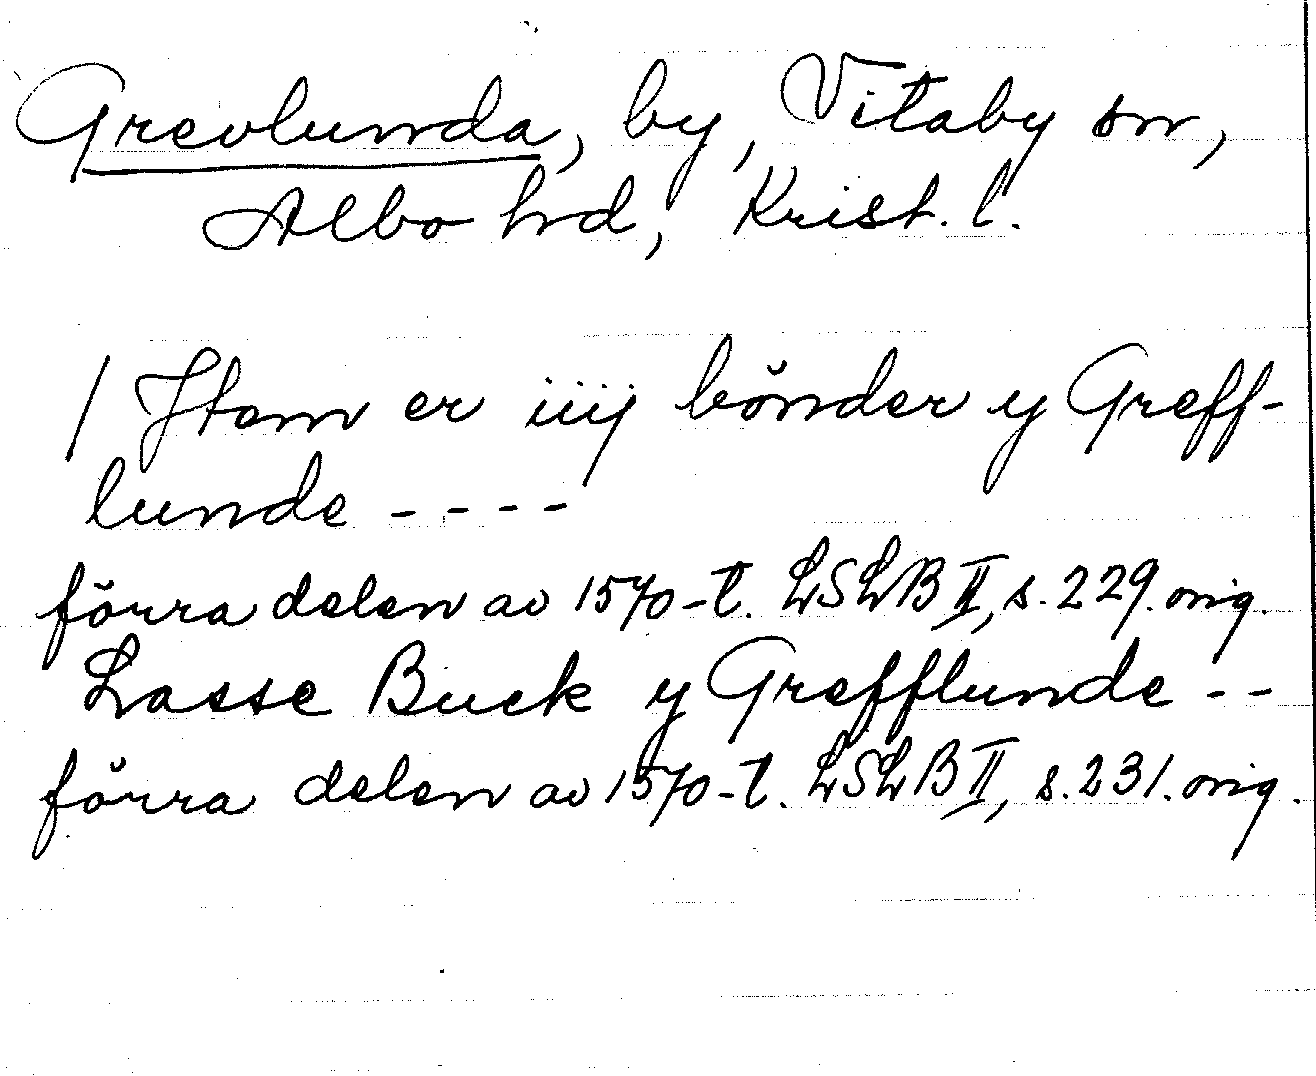 Grevlunda, by, Vitaby sn,
Albo hrd, Krist. l.
/ Jtem er iiij bönder y Greff-
lunde ----
förra delen av 1570-t. LSLB II, s. 229. orig.
Lasse Buck y Grefflunde --
förra delen av 1570-t. LSLB II, s. 231. orig.